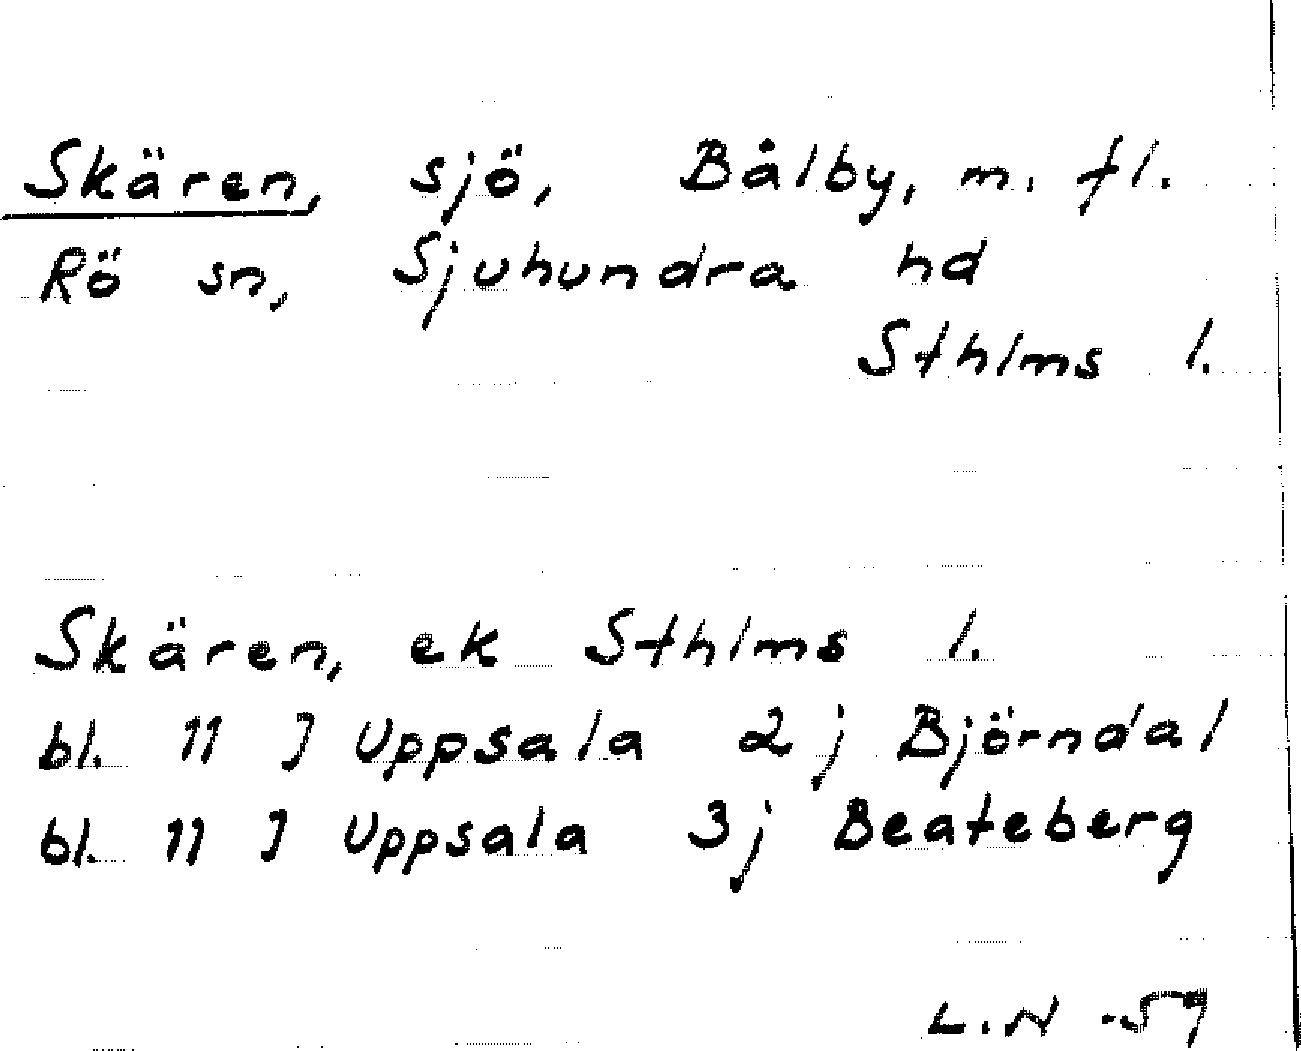 Skären, sjö, Bålby, m. fl.
Rö sn, Sjuhundra hd
Sthlms l.
Skären, ek Sthlms l.
bl. 11 J Uppsala 2 j Björndal
bl. 11 J Uppsala 3j Beateberg
L.N -59